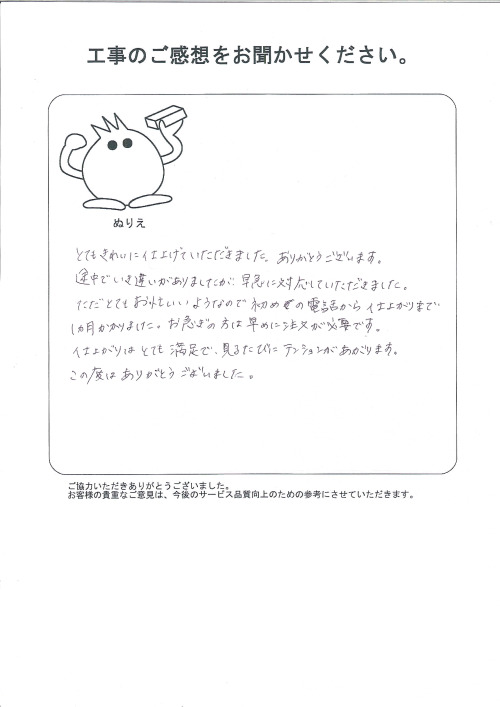 工事のご感想をお聞かせください。
ぬりえ
とてもきれいに仕上げていただきました。ありがとうございます。
途中でいき違いがありましたが、早急に対応していただきました。
ただとてもお忙しいようなので初めての電話から仕上がりまで
1カ月かかりました。お急ぎの方は早めに注文が必要です。
仕上がりはとても満足で、見るたびにテンションがあがります。
この度はありがとうございました。
ご協力いただきありがとうございました。
お客様の貴重なご意見は、今後のサービス品質向上のための参考にさせていただきます。